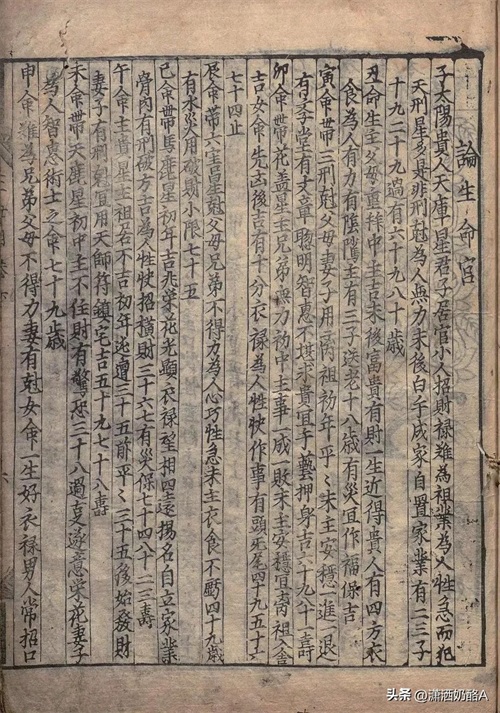 論生命宫
子太陽貴人天庫一星君子居官小人招財禄難為祖業為人性急而犯
天刑星多是非刑尅為人無力末後白手成家自置家業有二三子
十九二十九過有六十九八十歳
丑命生主父母重拜中主吉末後富貴有財一生近得貴人有四方衣
食為人有力有陰隲主有三子送老十八歳有災宜作福保吉
寅命帶三刑尅父母妻子用离祖初年平〻末主安穩一進一退
有李堂有文章聰明智愚不堪求貴宜手藝押身吉六十九八十一壽
卯命帶花盖星主兄弟無力初中主事一成一敗末主安穩宜离祖人舍
吉女命先凶後吉有十分衣禄為人性快作事有頭死尾四十九五十六
七十四止
辰命帶六害星尅父母兄弟不得力為人心巧性急末主衣食不虧四十九歳
有水災用破頭小限七十五
巳命帶馬塵星初年吉兆榮花光顯衣禄望相四遠揚名自立家業
骨肉有刑破方吉為人性快招横財三十六七有災保七十四八十二三壽
午命主貴星主祖居不吉初年迍邅三十五前平〻三十五後始發財
妻子有刑尅宜用天師符鎮宅吉五十九七十八壽
未命帶天星星初中主不住財有驚恐三十八過主遂意榮花妻子
為人智惠術士之命七十九歳
申命難為兄弟父母不得力妻有尅女命一生好衣禄男人常招口
头条 @潇洒奶酪A